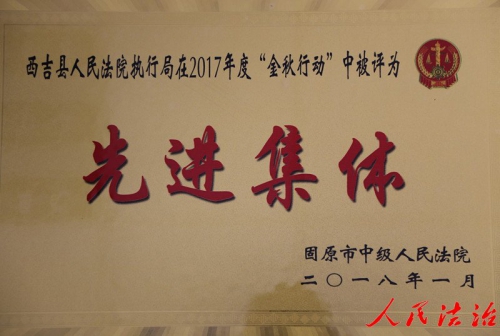 西吉县人民法院执行局在2017年度“金秋行动”中被评为
先进集体
固原市中级人民法院
二〇一八年一月
人民法治